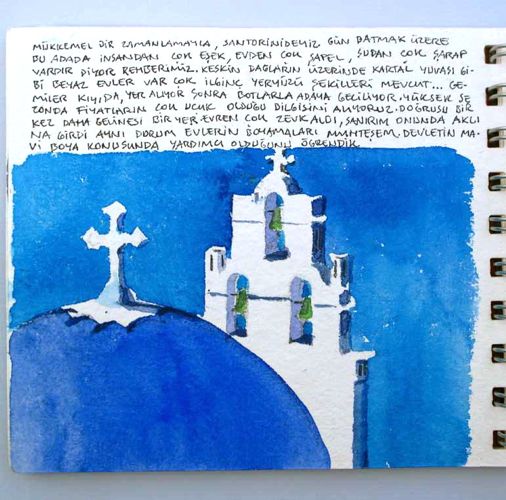 MÜKEMMEL BİR ZAMANLAMAYLA, SANTORİNİDEYİZ GÜN BATMAK ÜZERE
BU ADADA İNSANDAN ÇOK EŞEK, EVDEN ÇOK ŞAPEL, SUDAN ÇOK ŞARAP
VARDIR DİYOR REHBERİMİZ. KESKİN DAĞLARIN ÜZERİNDE KARTAL YUVASI Gİ-
Bİ BEYAZ EVLER VAR ÇOK İLGİNÇ YERYÜZÜ ŞEKİLLERİ MEVCUT... GE-
MİLER KIYIDA, YER ALIYOR SONRA BOTLARLA ADAYA GEÇİLİYOR. YÜKSEK SE-
ZONDA FİYATLARIN ÇOK UÇUK OLDUĞU BİLGİSİNİ ALIYORUZ. DOĞRUSU BİR
KEZ DAHA GELİNESİ BİR YER. EVREN ÇOK ZEVK ALDI, SANIRIM ONUNDA AKLI-
NA GİRDİ AYNI DURUM EVLERİN BOYAMALARI MUHTEŞEM, DEVLETİN MA-
Vİ BOYA KONUSUNDA YARDIMCI OLDUĞUNU ÖĞRENDİK.